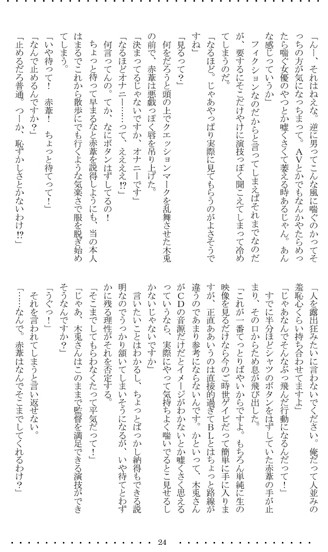 「んー、それはねえな。逆に男ってこんな風に喘ぐのかってそ
っちの方が気になっちまって。AVとかでもなんかやたらめっ
たら喘ぐ女優のやつとか嘘くさくて萎える時あるじゃん。あん
な感じっていうか」
フィクションなのだからと言ってしまえばそれまでなのだ
が、要するにそこだけやけに演技っぽく聞こえてしまって冷め
てしまうのだ。
「なるほど。じゃあやっぱり実際に見てもらうのがよさそうで
すね」
「見るって?」
何をだろうと頭の上でクエッションマークを乱舞させた木兎
の前で、赤葦は悪戯っぽく唇を吊り上げた。
「決まってるじゃないですか。オナニーです」
「なるほどオナニー……って、ええええ!?」
何言ってんの。てか、なにボタンはずしてるの!
ちょっと待って早まるなと赤葦を説得しようにも、当の本人
はまるでこれから散歩にでも行くような気楽さで服を脱ぎ始め
てしまう。
「いや待って! 赤葦! ちょっと待ってって!」
「なんで止めるんですか?」
「止めるだろ普通。つーか、恥ずかしさとかないわけ!?」
「人を露出狂みたいに言わないでください。俺だって人並みの
羞恥心くらい持ち合わせてますよ」
「じゃあなんでそんなぶっ飛んだ行動になるんだって!」
すでに半分ほどシャツのボタンをはずしていた赤葦の手が止
まり、その口からため息が飛び出した。
「これが一番てっとりばやいからですよ。もちろん単純に生の
映像を見るだけなら今のご時世ゲイビだって簡単に手に入りま
すが、正直ああいうのは直接的過ぎてBLとはちょっと路線が
違うのであまり参考にならないんです。かといって、木兎さん
がCDの音源だけだとイメージがわかないとか嘘くさく思える
っていうなら、実際にやって気持ちよく喘いでるとこ見せるし
かないじゃないですか」
言いたいことはわかるし、ちょっとばっかし納得もできる説
明なのでうっかり頷いてしまいそうになるが、いや待てとわず
かに残る理性がそれを否定する。
「そこまでしてもらわなくたって平気だって!」
「じゃあ、木兎さんはこのままで監督を満足できる演技ができ
そうなんですか?」
「うぐっ…」
それを言われてしまうと言い返せない。
「……なんで、赤葦はなんでそこまでしてくれるわけ?」
24